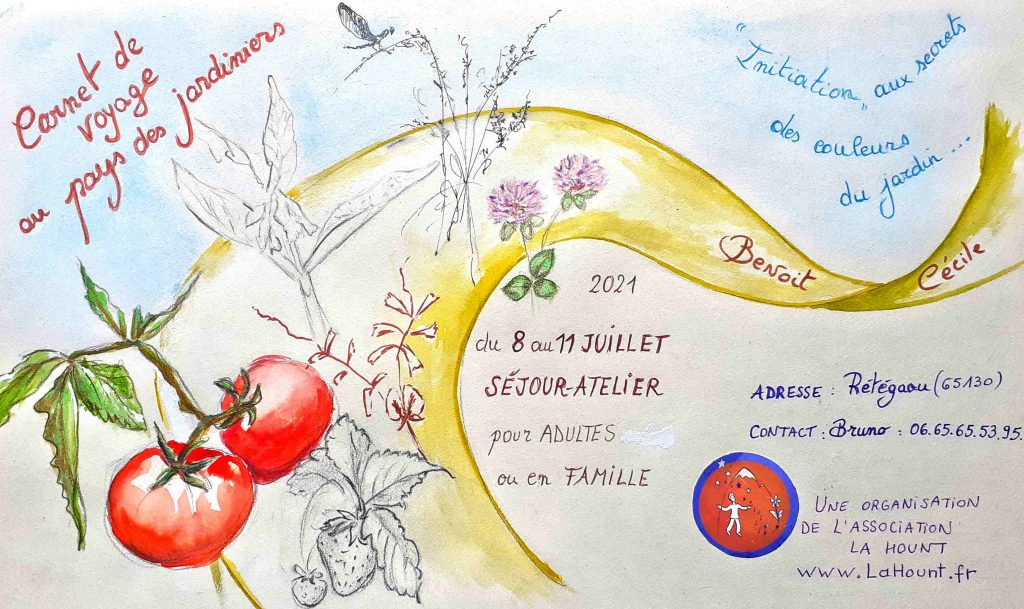 Carnet de
voyage
au pays des jardiniers
"Initiation" aux secrets
des couleurs
du jardin...
Benoit
Cécile
2021
du 8 au 11 JUILLET
SÉJOUR-ATELIER
pour ADULTES
ou en FAMILLE
ADRESSE : Rétégaou (65130)
CONTACT : Bruno : 06.65.65.53.95.
UNE ORGANISATION
DE L'ASSOCIATION
LA HOUNT
www.LaHount.fr